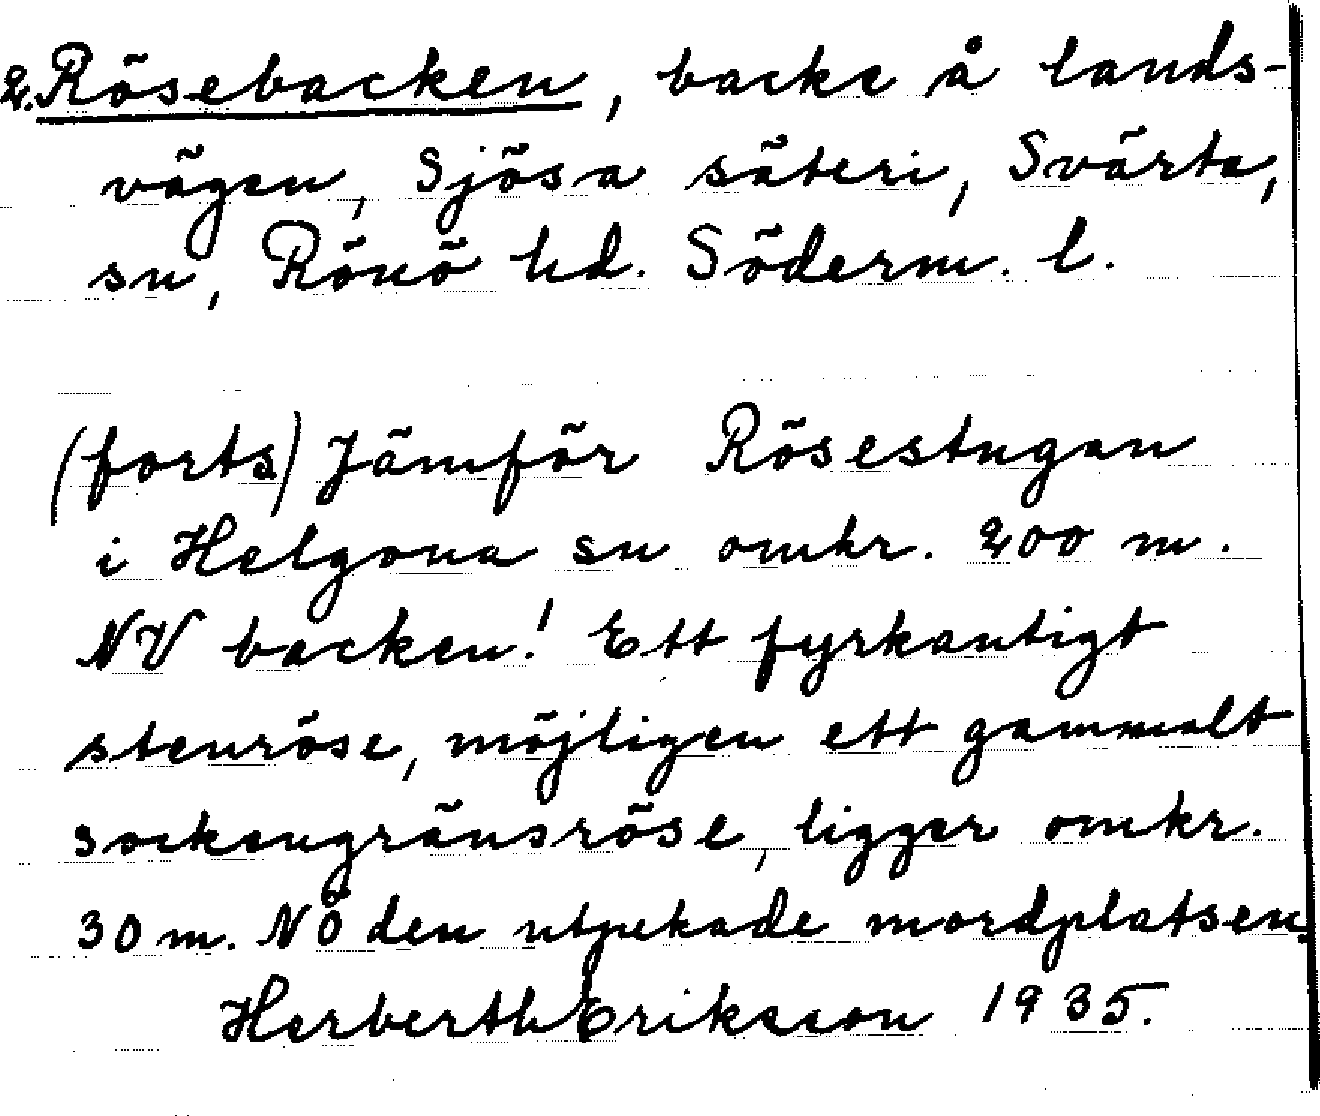 2. Rösebacken, backe å lands-
vägen, Sjösa säteri, Svärta,
sn, Rönö hd. Söderm. l.
(forts) Jämför Rösestugan
i Helgona sn omkr. 200 m.
NV backen! Ett fyrkantigt
stenröse, möjligen ett gammalt
sockengränsröse, ligger omkr.
30 m. NÖ den utpekade mordplatsen.
Herberth Eriksson 1935.